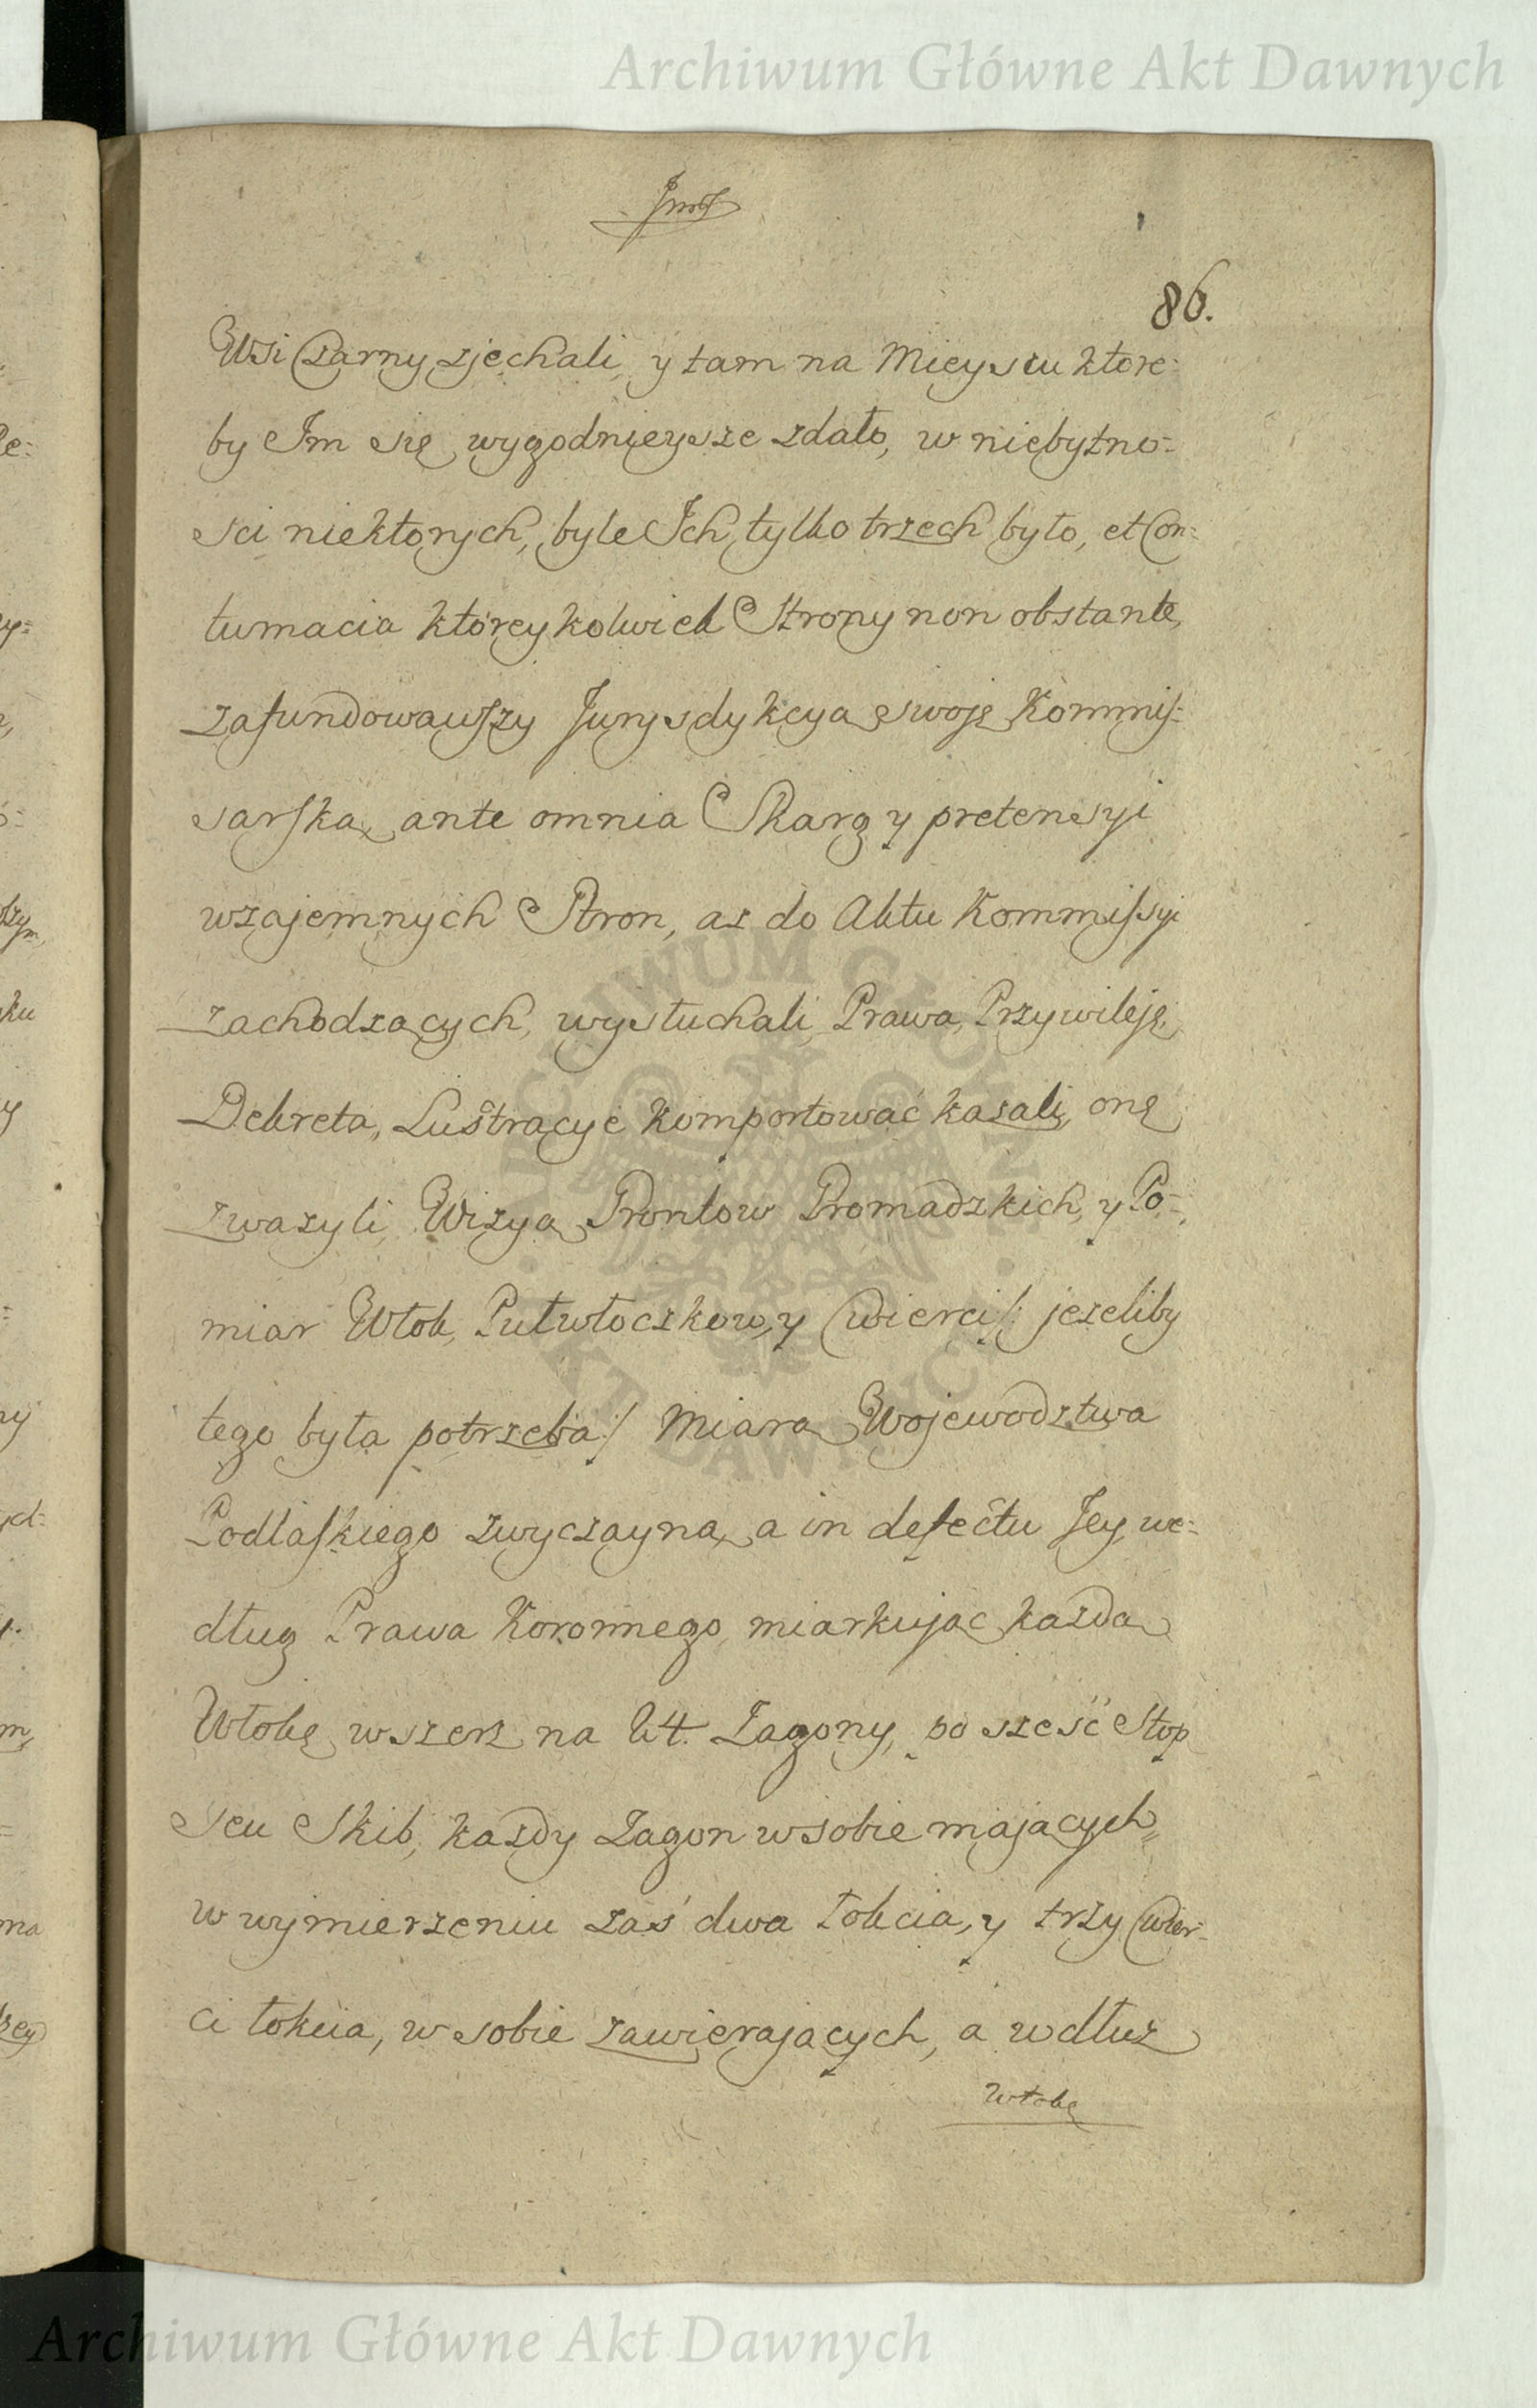 Archiwum Główne Akt Dawnych
86.
Wsi Czarny zjechali, y tam na Mieyscu ktore-
by Im się wygodnieysze zdało, w niebytno-
sci niektorych, byle Ich tylko trzech było, et Con-
tumacia ktoreykolwiek Strony non obstante,
zafundowawszy Jurysdykcyą swoję Kommis-
sarską, ante omnia Skarg y pretensyi
wzajemnych Stron, az do Aktu Kommissyi
zachodzących, wysłuchali, Prawa, Przywileje,
Dekreta, Lustracye komportować kazali, onę
zwazyli, Wizyą Grontow Gromadzkich, y Po-
miar Włok, Pułwłoczkow, y Cwierci /: jezeliby
tego była potrzeba :/ Miarą Wojewodztwa
Podlaskiego zwyczayną, a in defectu Jey, we-
dług Prawa Koronnego, miarkując kazdą
Włokę wszerz na 24. Zagony, po szesć Stop
seu Skib, kazdy Zagon w sobie mających,
w wymierzeniu zaś dwa łokcia, y trzy Cwier-
ci łokcia, w sobie zawierających, a wdłuz
Włokę
Archiwum Główne Akt Dawnych